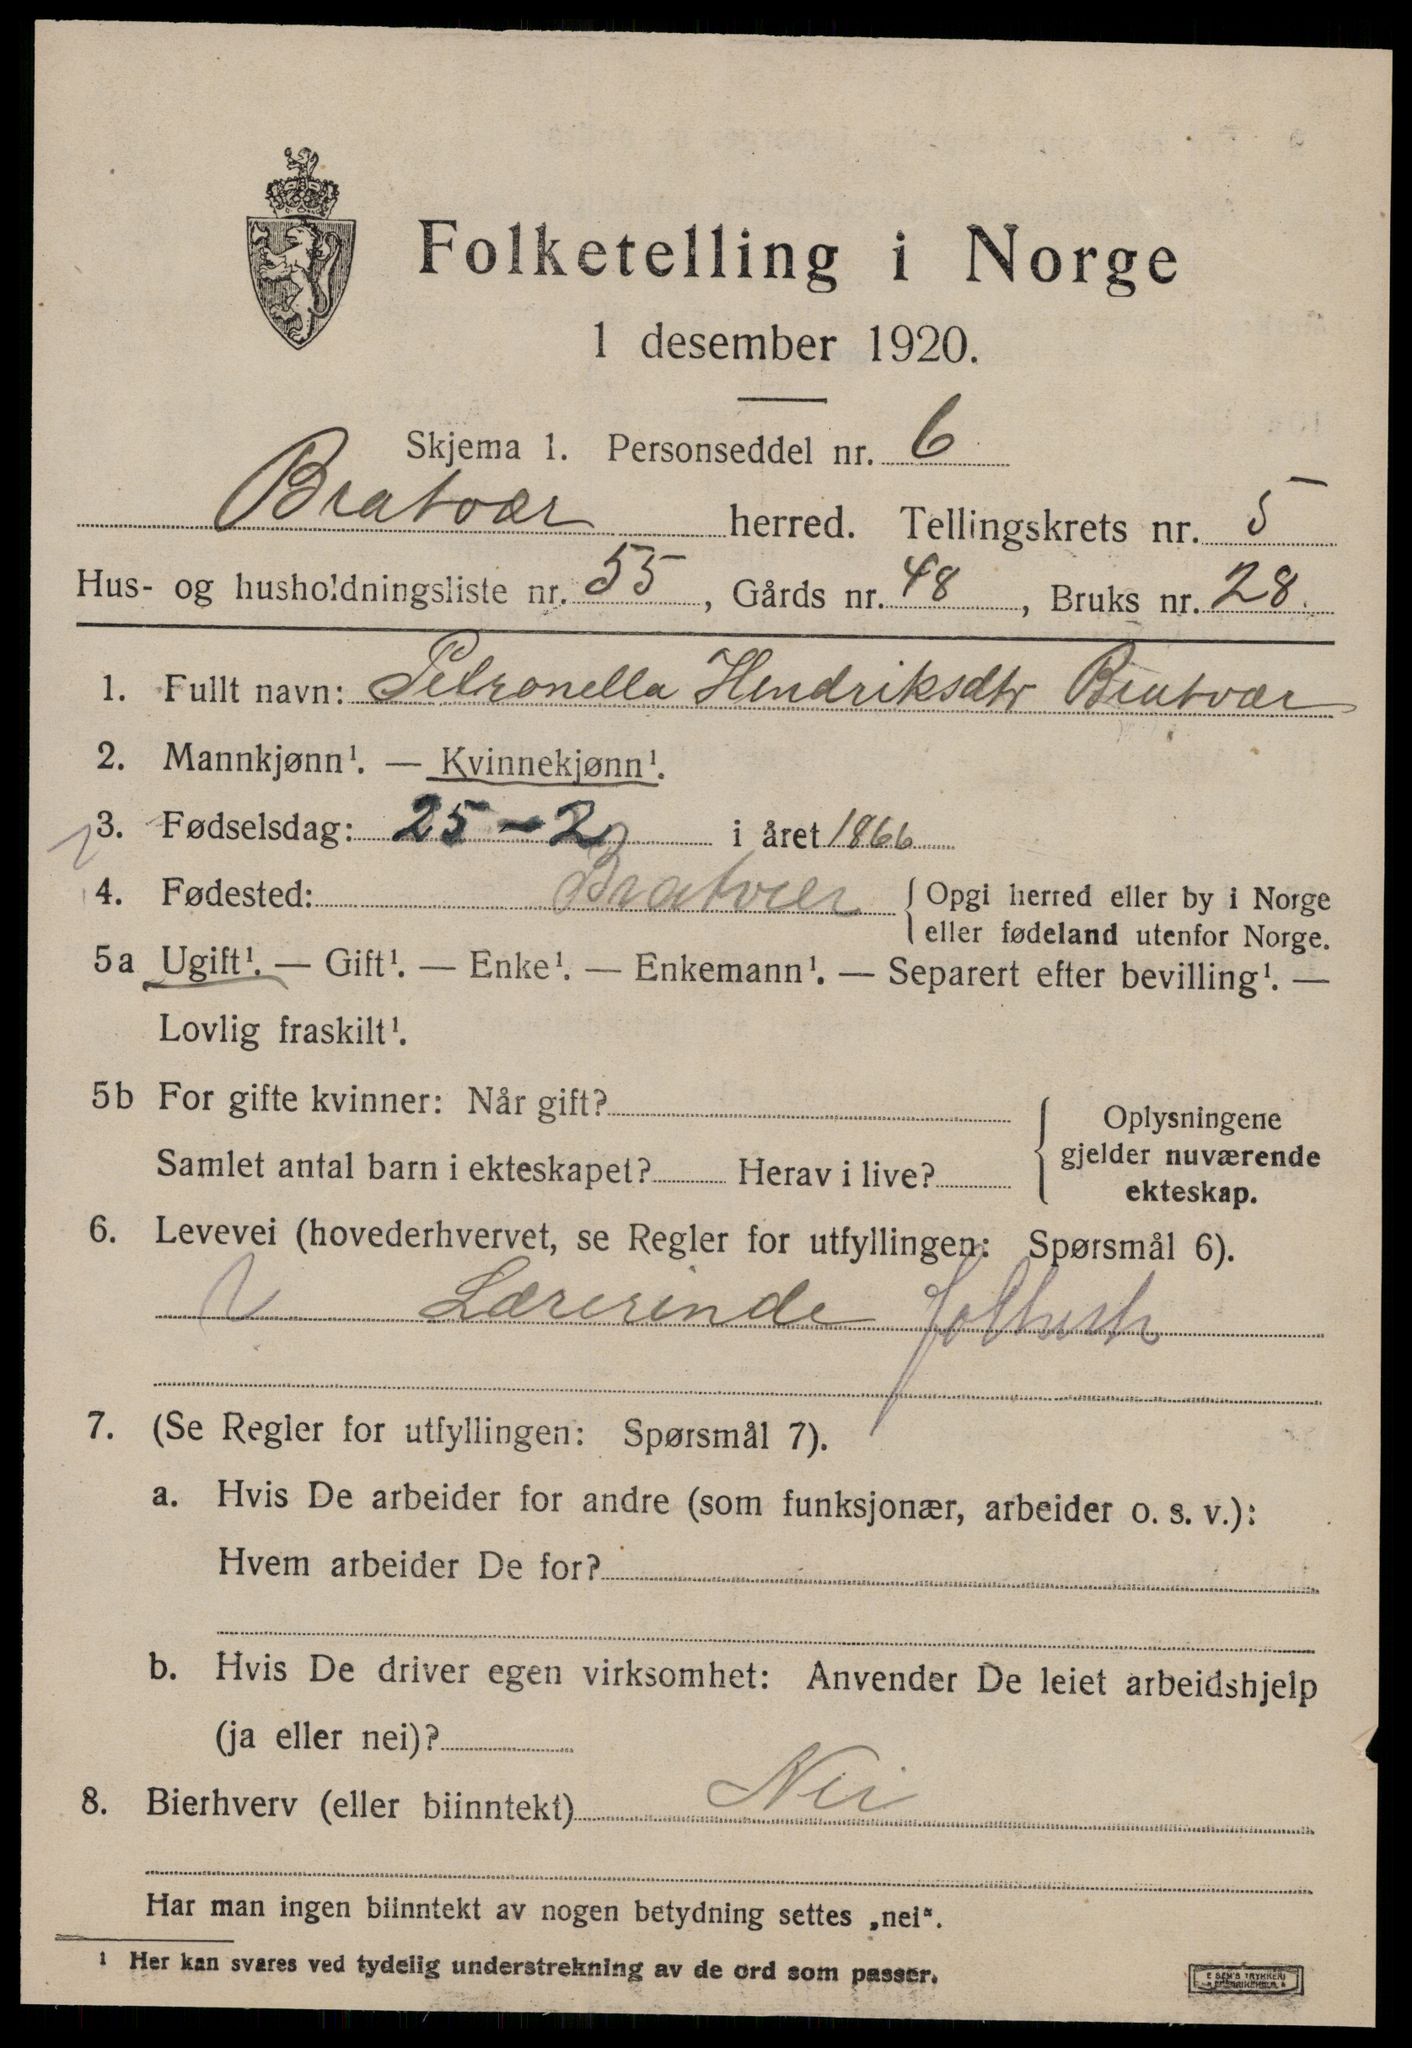 Folketelling i Norge
1 desember 1920.
Skjema 1. Personseddel nr. 6
Bratvær herred. Tellingskrets nr. 5
Hus- og husholdningsliste nr. 55, Gårds nr. 48, Bruks nr. 28.
1. Fullt navn: Petronella Hendriksdtr Bratvær
2. Mannkjønn¹. — Kvinnekjønn¹.
3. Fødselsdag: 25 - 2 i året 1866
4. Fødested: Bratvær { Opgi herred eller by i Norge
eller fødeland utenfor Norge.
5a Ugift¹. — Gift¹. — Enke¹. — Enkemann¹. — Separert efter bevilling¹. —
Lovlig fraskilt¹.
5b For gifte kvinner: Når gift?
Samlet antal barn i ekteskapet? Herav i live?
{ Oplysningene
gjelder nuværende
ekteskap.
6. Levevei (hovederhvervet, se Regler for utfyllingen: Spørsmål 6).
Lærerinde
7. (Se Regler for utfyllingen: Spørsmål 7).
a. Hvis De arbeider for andre (som funksjonær, arbeider o. s. v.):
Hvem arbeider De for?
b. Hvis De driver egen virksomhet: Anvender De leiet arbeidshjelp
(ja eller nei)?
8. Bierhverv (eller biinntekt) Nei
Har man ingen biinntekt av nogen betydning settes „nei“.
¹ Her kan svares ved tydelig understrekning av de ord som passer.